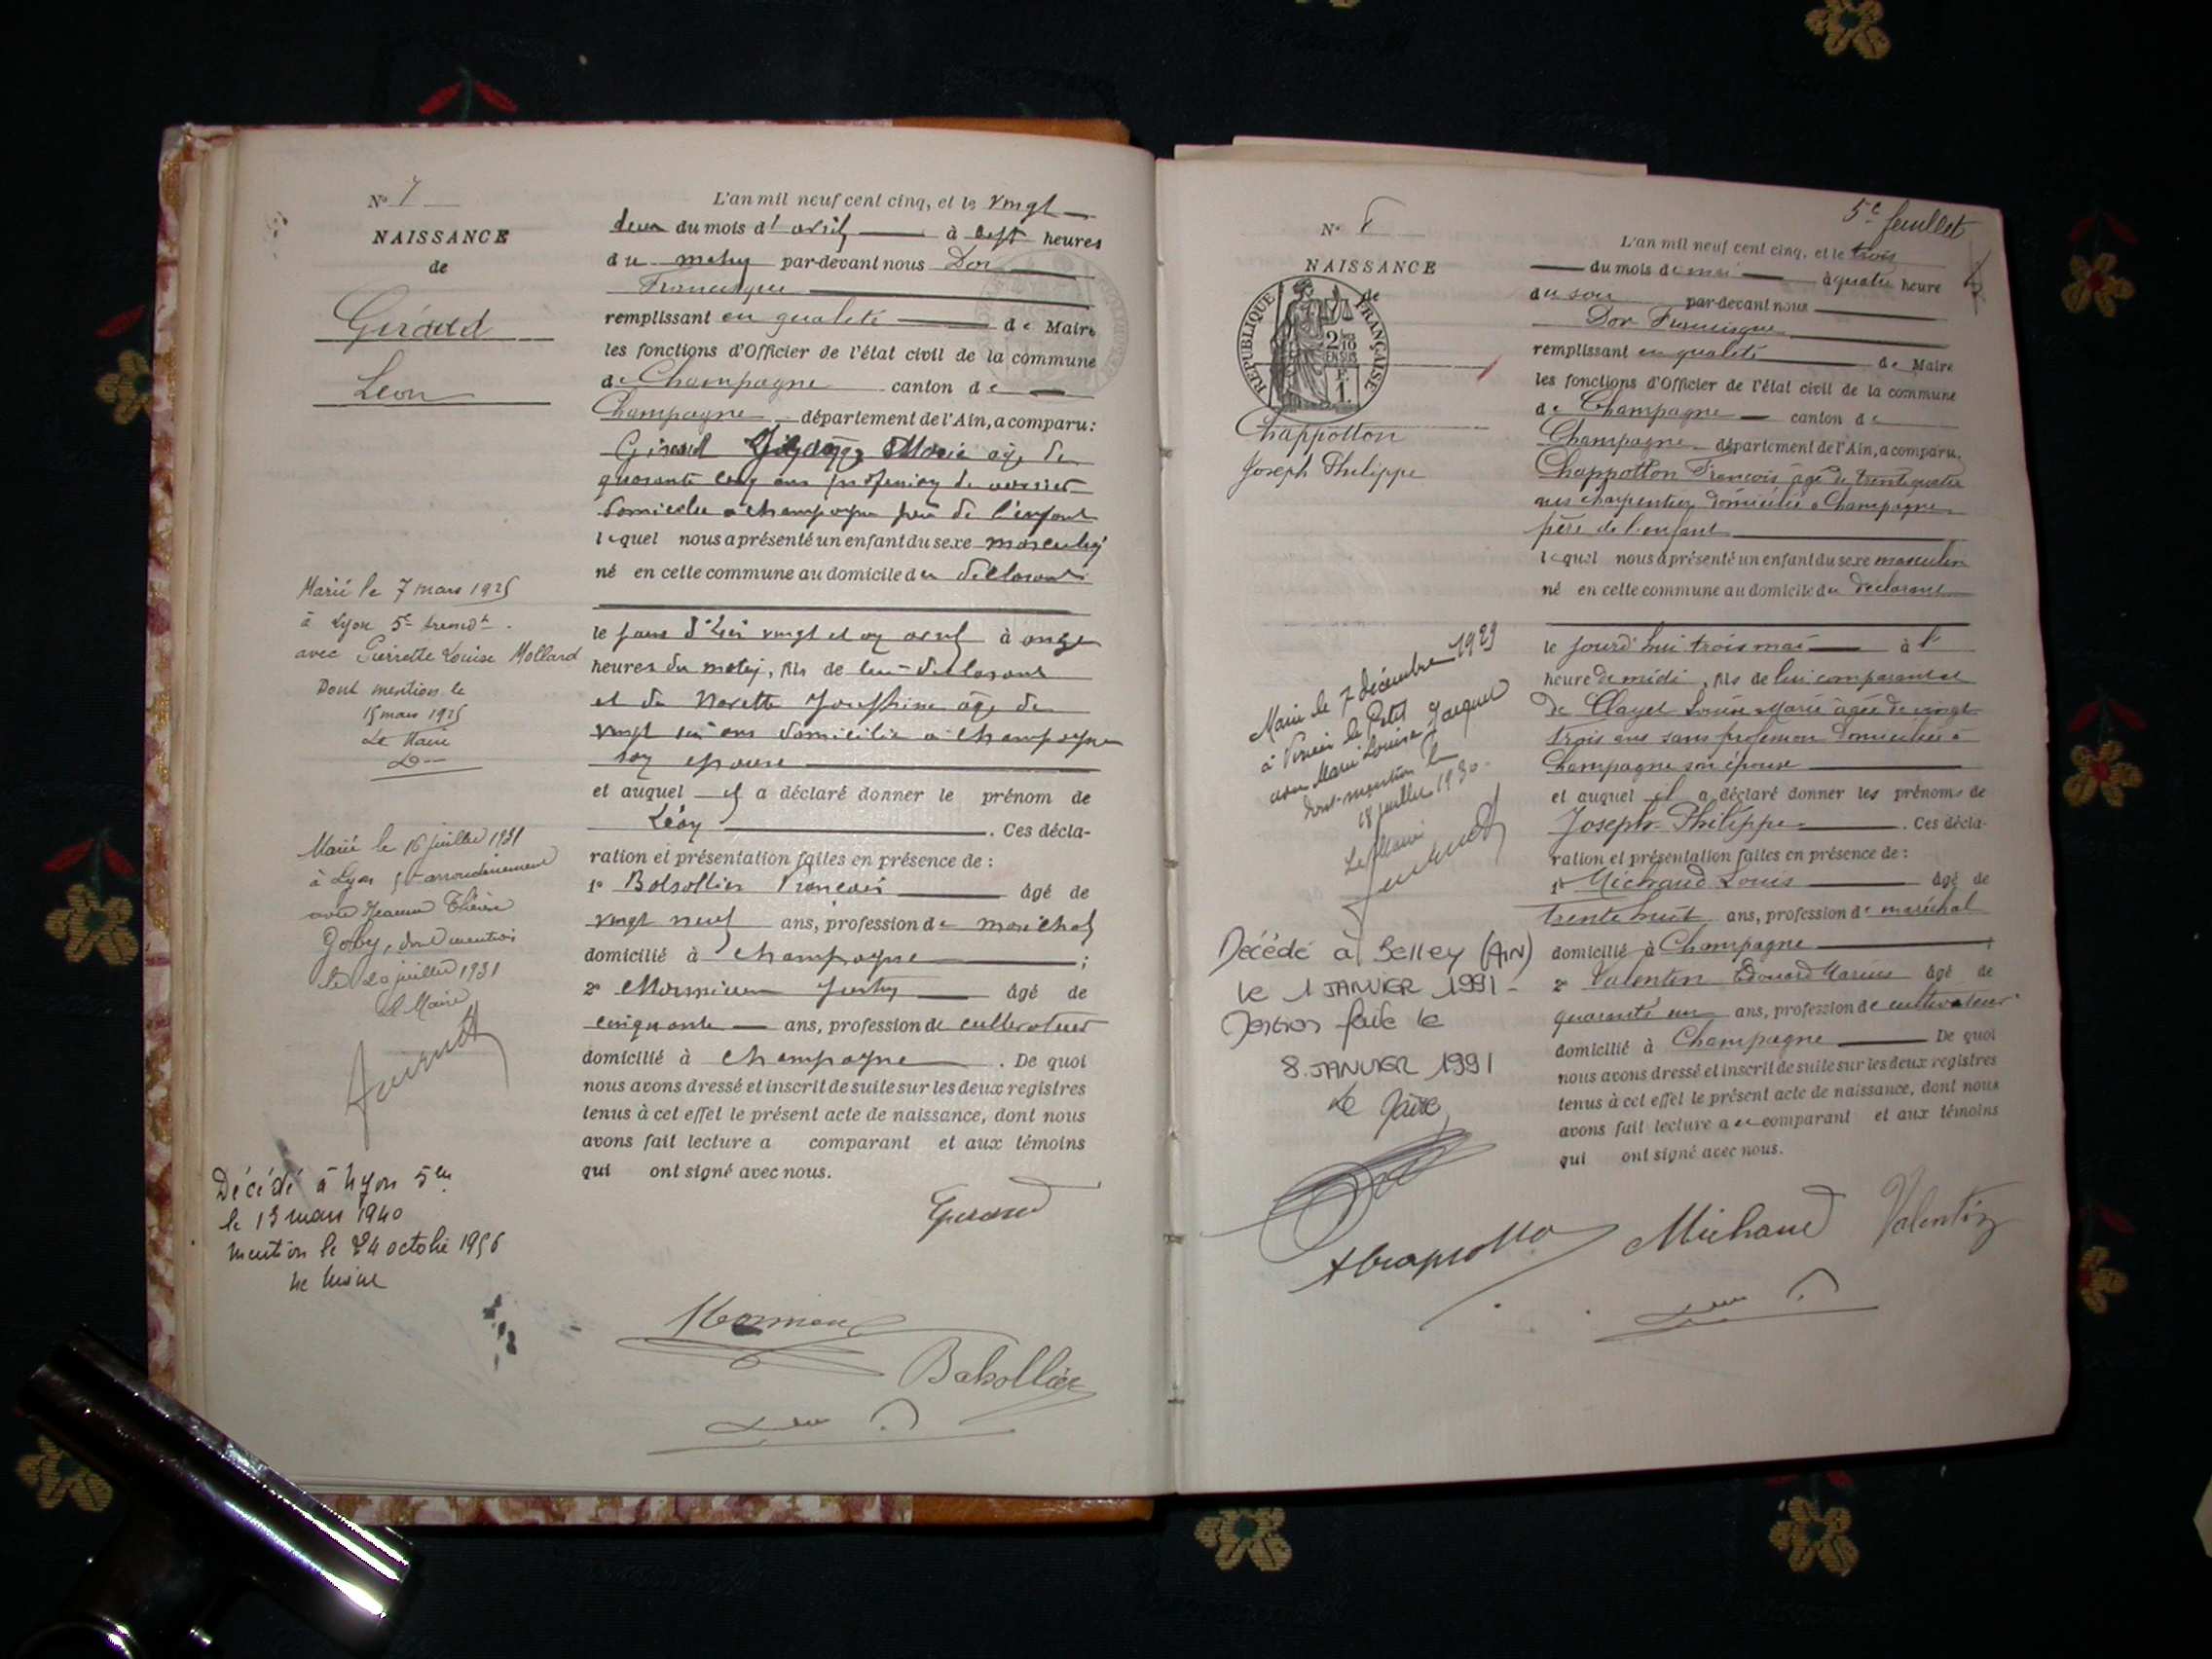 N° 7
NAISSANCE
de
Girard
Léon
L'an mil neuf cent cinq, et le vingt
deux du mois d'avril à sept heures
du matin par-devant nous Dor
Francisque
remplissant en qualité de Maire
les fonctions d'Officier de l'état civil de la commune
de Champagne canton de
Champagne département de l'Ain, a comparu:
Girard Marie âgé de
quarante cinq ans profession de
domicilié à Champagne père de l'enfant
lequel nous a présenté un enfant du sexe masculin
né en cette commune au domicile du déclarant
le jour d'hier vingt et un avril à onze
heures du matin, fils de lui déclarant
et de Joséphine âgée de
vingt six ans domiciliée à Champagne
son épouse
et auquel il a déclaré donner le prénom de
Léon. Ces décla-
ration et présentation faites en présence de :
1° Bolsollier François âgé de
vingt neuf ans, profession de maréchal
domicilié à Champagne ;
2° âgé de
cinquante ans, profession de cultivateur
domicilié à Champagne. De quoi
nous avons dressé et inscrit de suite sur les deux registres
tenus à cet effet le présent acte de naissance, dont nous
avons fait lecture a comparant et aux témoins
qui ont signé avec nous.
Marié le 7 mars 1925
à Lyon 5e
avec Pierrette Louise Mollard
Dont mention le
15 mars 1925
Le Maire
Marié le 16 juillet 1931
à Lyon 5e arrondissement
avec Jeanne
Goby, dont mention
le 20 juillet 1931
Le Maire
Décédé à Lyon 5e
le 13 mars 1940
mention le 24 octobre 1956
Le Maire
Girard
Bolsollier
5e feuillet
N° 8
NAISSANCE
de
RÉPUBLIQUE FRANÇAISE
2/10
EN SUS
1F.
Chappotton
Joseph Philippe
L'an mil neuf cent cinq, et le trois
du mois de mai à quatre heure
du soir par-devant nous
Dor Francisque
remplissant en qualité de Maire
les fonctions d'Officier de l'état civil de la commune
de Champagne canton de
Champagne département de l'Ain, a comparu.
Chappotton François âgé de trente quatre
ans charpentier domicilié à Champagne
père de l'enfant
lequel nous a présenté un enfant du sexe masculin
né en cette commune au domicile du déclarant
le jourd'hui trois mai à l'
heure de midi, fils de lui comparant et
de Clayel Louise Marie âgée de vingt
trois ans sans profession domiciliée à
Champagne son épouse
et auquel il a déclaré donner les prénoms de
Joseph Philippe. Ces décla-
ration et présentation faites en présence de :
1° Michaud Louis âgé de
trente huit ans, profession de maréchal
domicilié à Champagne ;
2° Valentin Edouard Marius âgé de
quarante un ans, profession de cultivateur
domicilié à Champagne De quoi
nous avons dressé et inscrit de suite sur les deux registres
tenus à cet effet le présent acte de naissance, dont nous
avons fait lecture au comparant et aux témoins
qui ont signé avec nous.
Marié le 7 décembre 1929
à Virieu le Petit
avec Marie Louise Jacquet
dont mention le
18 juillet 1930.
Le Maire
Décédé à Belley (AIN)
le 1 JANVIER 1991 -
faite le
8. JANVIER 1991
Le Maire,
Michaud
Valentin